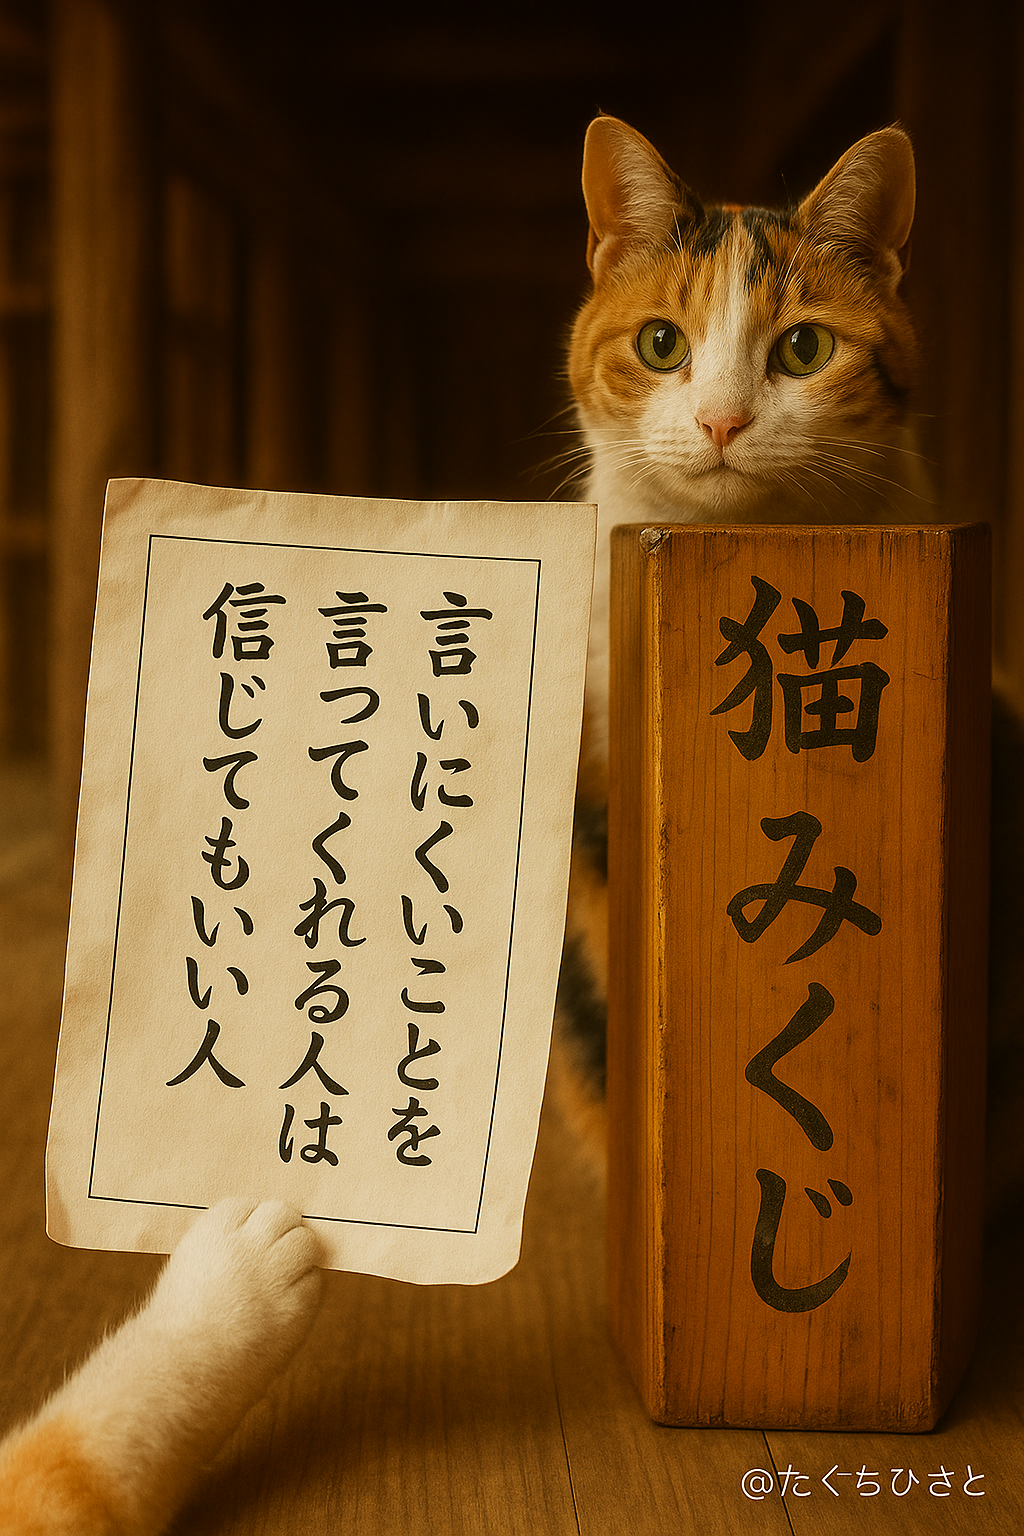 言いにくいことを
言ってくれる人は
信じてもいい人
猫みくじ
@たぐちひさと